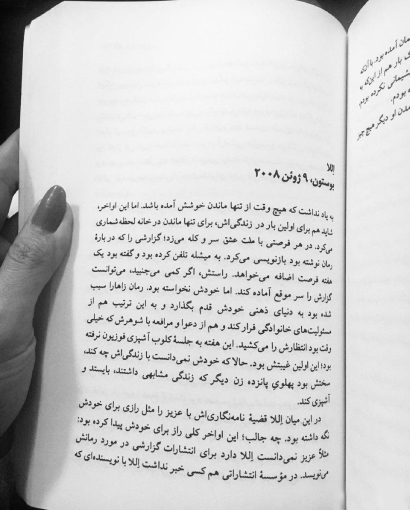 اِللا
بوستون، ۹ ژوئن ۲۰۰۸
به یاد نداشت که هیچ وقت از تنها ماندن خوشش آمده باشد. اما این اواخر،
شاید هم برای اولین بار در زندگی‌اش، برای تنها ماندن در خانه لحظه‌شماری
می‌کرد. در هر فرصتی با ملت عشق سر و کله می‌زد؛ گزارشی را که در بارهٔ
رمان نوشته بود بازنویسی می‌کرد. به میشله تلفن کرده بود و گفته بود یک
هفته فرصت اضافه می‌خواهد. راستش، اگر کمی می‌جنبید، می‌توانست
گزارش را سر موقع آماده کند. اما خودش نخواسته بود. رمان زاهارا سبب
شده بود به دنیای ذهنی خودش قدم بگذارد و به این ترتیب هم از
مسئولیت‌های خانوادگی فرار کند و هم از دعوا و مرافعه با شوهرش که خیلی
وقت بود انتظارش را می‌کشید. این هفته به جلسهٔ کلوب آشپزی فوزیون نرفته
بود؛ این اولین غیبتش بود. حالا که خودش نمی‌دانست با زندگی‌اش چه کند،
سختش بود پهلوی پانزده زن دیگر که زندگی مشابهی داشتند، بایستد و
آشپزی کند.
در این میان اِللا قضیهٔ نامه‌نگاری‌اش با عزیز را مثل رازی برای خودش
نگه داشته بود. چه جالب؛ این اواخر کلی راز برای خودش پیدا کرده بود:
مثلاً عزیز نمی‌دانست اِللا دارد برای انتشارات گزارشی در مورد رمانش
می‌نویسد. در مؤسسهٔ انتشاراتی هم کسی خبر نداشت اِللا با نویسنده‌ای که
آمده بود با آنکه
بار هم از این‌که به
پشیمانی نکرده بودم
بودم.
مدن او دیگر هیچ چیز